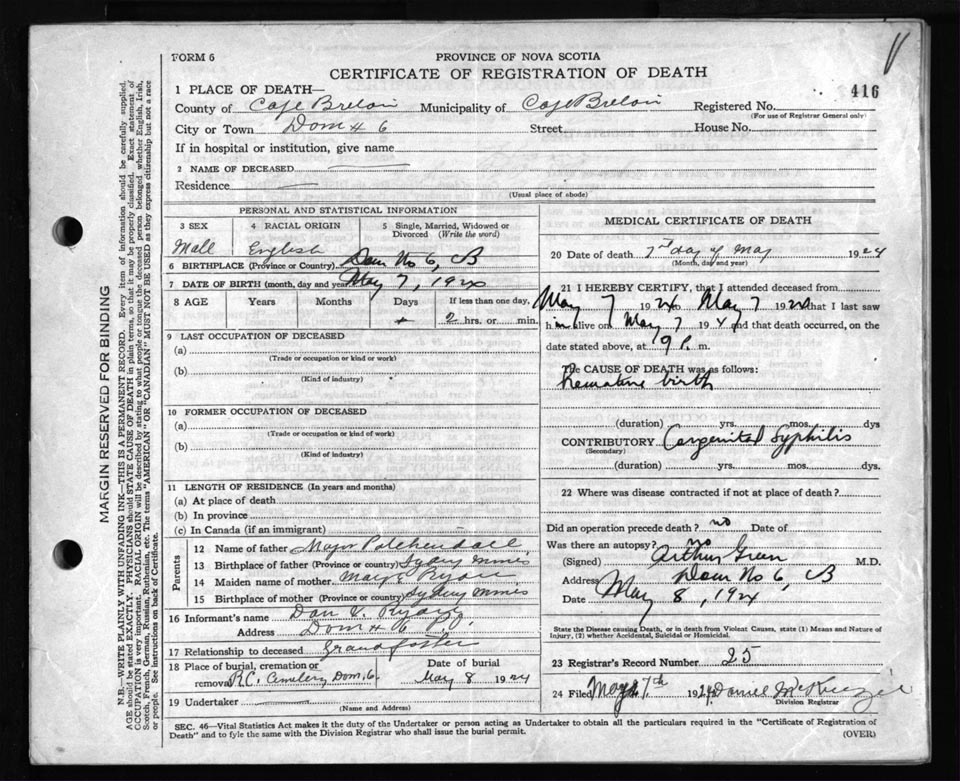 FORM 6
PROVINCE OF NOVA SCOTIA
CERTIFICATE OF REGISTRATION OF DEATH
416
1 PLACE OF DEATH—
County of Cape Breton Municipality of Cape Breton Registered No.
(For use of Registrar General only)
City or Town Dom # 6 Street House No.
If in hospital or institution, give name
2 NAME OF DECEASED
Residence
(Usual place of abode)
PERSONAL AND STATISTICAL INFORMATION
3 SEX 4 RACIAL ORIGIN 5 Single, Married, Widowed or Divorced (Write the word)
Mall English
6 BIRTHPLACE (Province or Country) Dom No 6, CB
7 DATE OF BIRTH (month, day and year) May 7, 1924
8 AGE Years Months Days If less than one day,
2 hrs. or min.
9 LAST OCCUPATION OF DECEASED
(a)
(Trade or occupation or kind of work)
(b)
(Kind of industry)
10 FORMER OCCUPATION OF DECEASED
(a)
(Trade or occupation or kind of work)
(b)
(Kind of industry)
11 LENGTH OF RESIDENCE (In years and months)
(a) At place of death
(b) In province
(c) In Canada (if an immigrant)
Parents
12 Name of father Major
13 Birthplace of father (Province or country) Sydney Mines
14 Maiden name of mother Mary Ryan
15 Birthplace of mother (Province or country) Sydney Mines
16 Informant's name Dan Ryan
Address Dom # 6
17 Relationship to deceased
18 Place of burial, cremation or removal R.C. Cemetery Dom. 6 Date of burial May 8 1924
19 Undertaker
(Name and Address)
MEDICAL CERTIFICATE OF DEATH
20 Date of death 7 day of May 1924
(Month, day and year)
21 I HEREBY CERTIFY, that I attended deceased from
May 7 1924 to May 7 1924 that I last saw
him alive on May 7 1924 and that death occurred, on the
date stated above, at 9 P. m.
The CAUSE OF DEATH was as follows:
Premature birth
(duration) yrs. mos. dys
CONTRIBUTORY Congenital Syphilis
(Secondary)
(duration) yrs. mos. dys.
22 Where was disease contracted if not at place of death?
Did an operation precede death? no Date of
Was there an autopsy? no
(Signed) Arthur Green M.D.
Address Dom No 6, CB
Date May 8, 1924
State the Disease causing Death, or in death from Violent Causes, state (1) Means and Nature of
Injury, (2) whether Accidental, Suicidal or Homicidal.
23 Registrar's Record Number 25
24 Filed May 7th 1924 Daniel McKenzie
Division Registrar
SEC. 46—Vital Statistics Act makes it the duty of the Undertaker or person acting as Undertaker to obtain all the particulars required in the "Certificate of Registration of
Death" and to fyle the same with the Division Registrar who shall issue the burial permit.
(OVER)
MARGIN RESERVED FOR BINDING
N.B.—WRITE PLAINLY WITH UNFADING INK—THIS IS A PERMANENT RECORD. Every item of information should be carefully supplied.
AGE should be stated EXACTLY. PHYSICIANS should STATE CAUSE OF DEATH in plain terms, so that it may be properly classified. Exact statement of
OCCUPATION is very important. RACIAL ORIGIN will be described by stating to what people or tongue the deceased person belonged whether English, Irish,
Scotch, French, German, Russian, Ruthenian, etc. The terms "AMERICAN" OR "CANADIAN" MUST NOT BE USED as they express citizenship but not a race
or people. See instructions on back of Certificate.